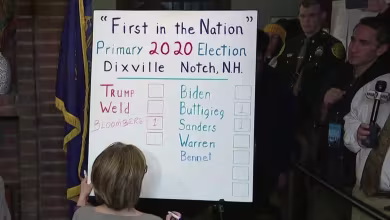 "First in the Nation"
Primary 2020 Election
Dixville Notch, N.H.
Trump
Weld
BLOOMBERG 1
Biden
Buttigieg 1
Sanders 1
Warren
Bennet